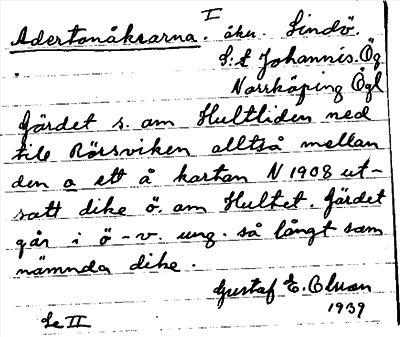 I
Adertonåkrarna. åker. Lindö.
S:t Johannis. Ög
Norrköping Ögl
Gärdet s. om Hultliden ned
till Rörsviken alltså mellan
den o ett å kartan N 1908 ut-
satt dike ö. om Hultet. Gärdet
går i ö-v. ung. så långt som
nämnda dike.
Gustaf E. Olson
1939
Se II